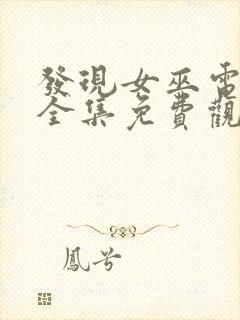 發現女巫電
全集免費觀
鳳兮